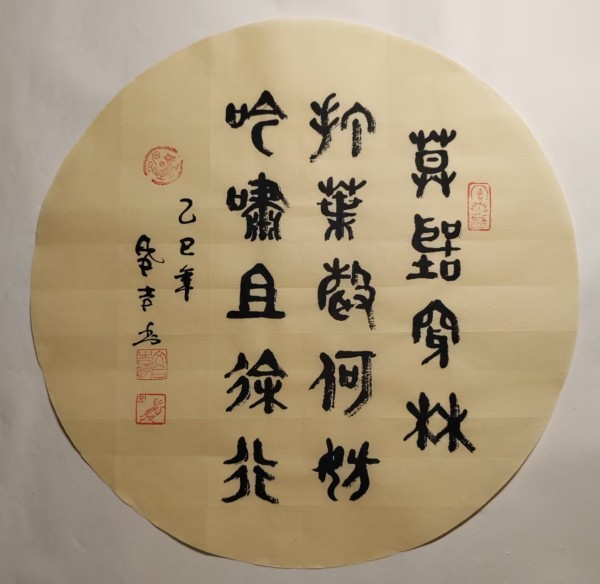 莫聽穿林
打葉聲何妨
吟嘯且徐行
乙巳年